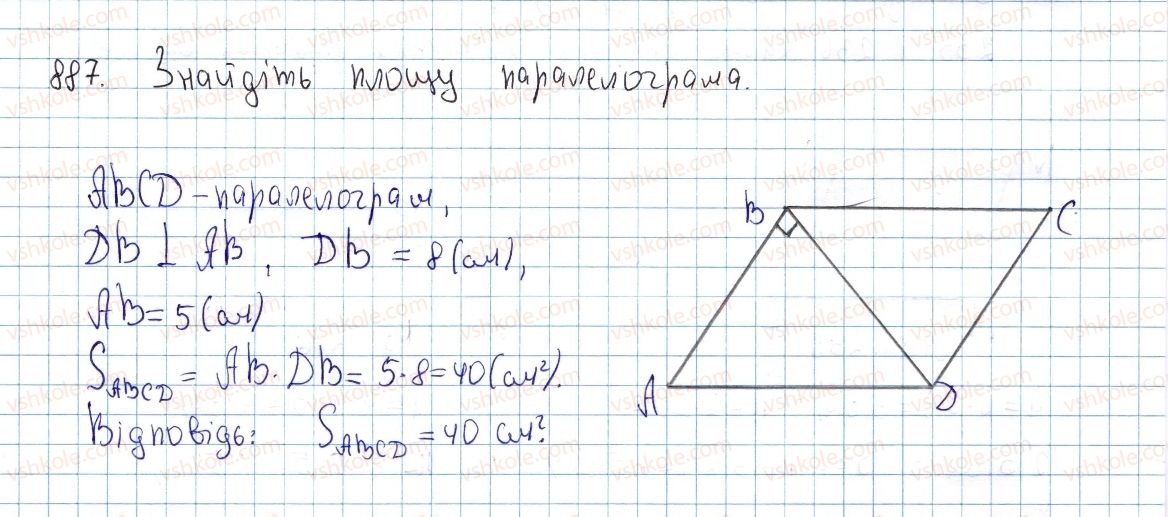 887. Знайдіть площу паралелограма.
ABCD - паралелограм,
DB ⊥ AB, DB = 8 (см),
AB = 5 (см)
S_ABCD = AB · DB = 5 · 8 = 40 (см²).
Відповідь: S_ABCD = 40 см².
B
C
A
D
vshkole.com